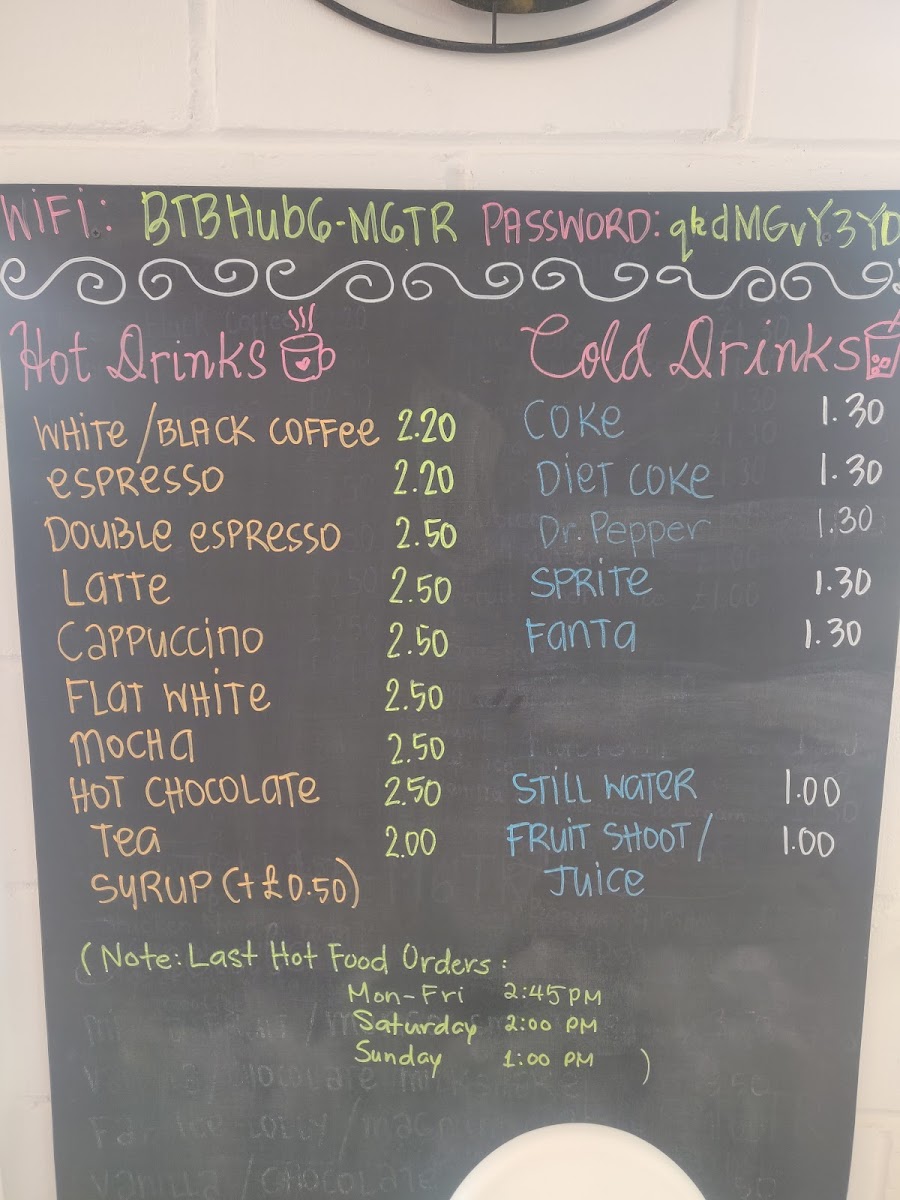 WiFi: BTBHub6-M6TR PASSWORD:
Hot Drinks
WHITE/BLACK COFFEE 2.20
ESPRESSO 2.20
DOUBLE ESPRESSO 2.50
LATTE 2.50
CAPPUCCINO 2.50
FLAT WHITE 2.50
MOCHA 2.50
HOT CHOCOLATE 2.50
TEA 2.00
SYRUP (+£0.50)
Cold Drinks
COKE 1.30
DIET COKE 1.30
Dr. Pepper 1.30
SPRITE 1.30
FANTA 1.30
STILL WATER 1.00
FRUIT SHOOT/ 1.00
JUICE
(Note: Last Hot Food Orders:
Mon-Fri 2:45PM
Saturday 2:00 PM
Sunday 1:00 PM )